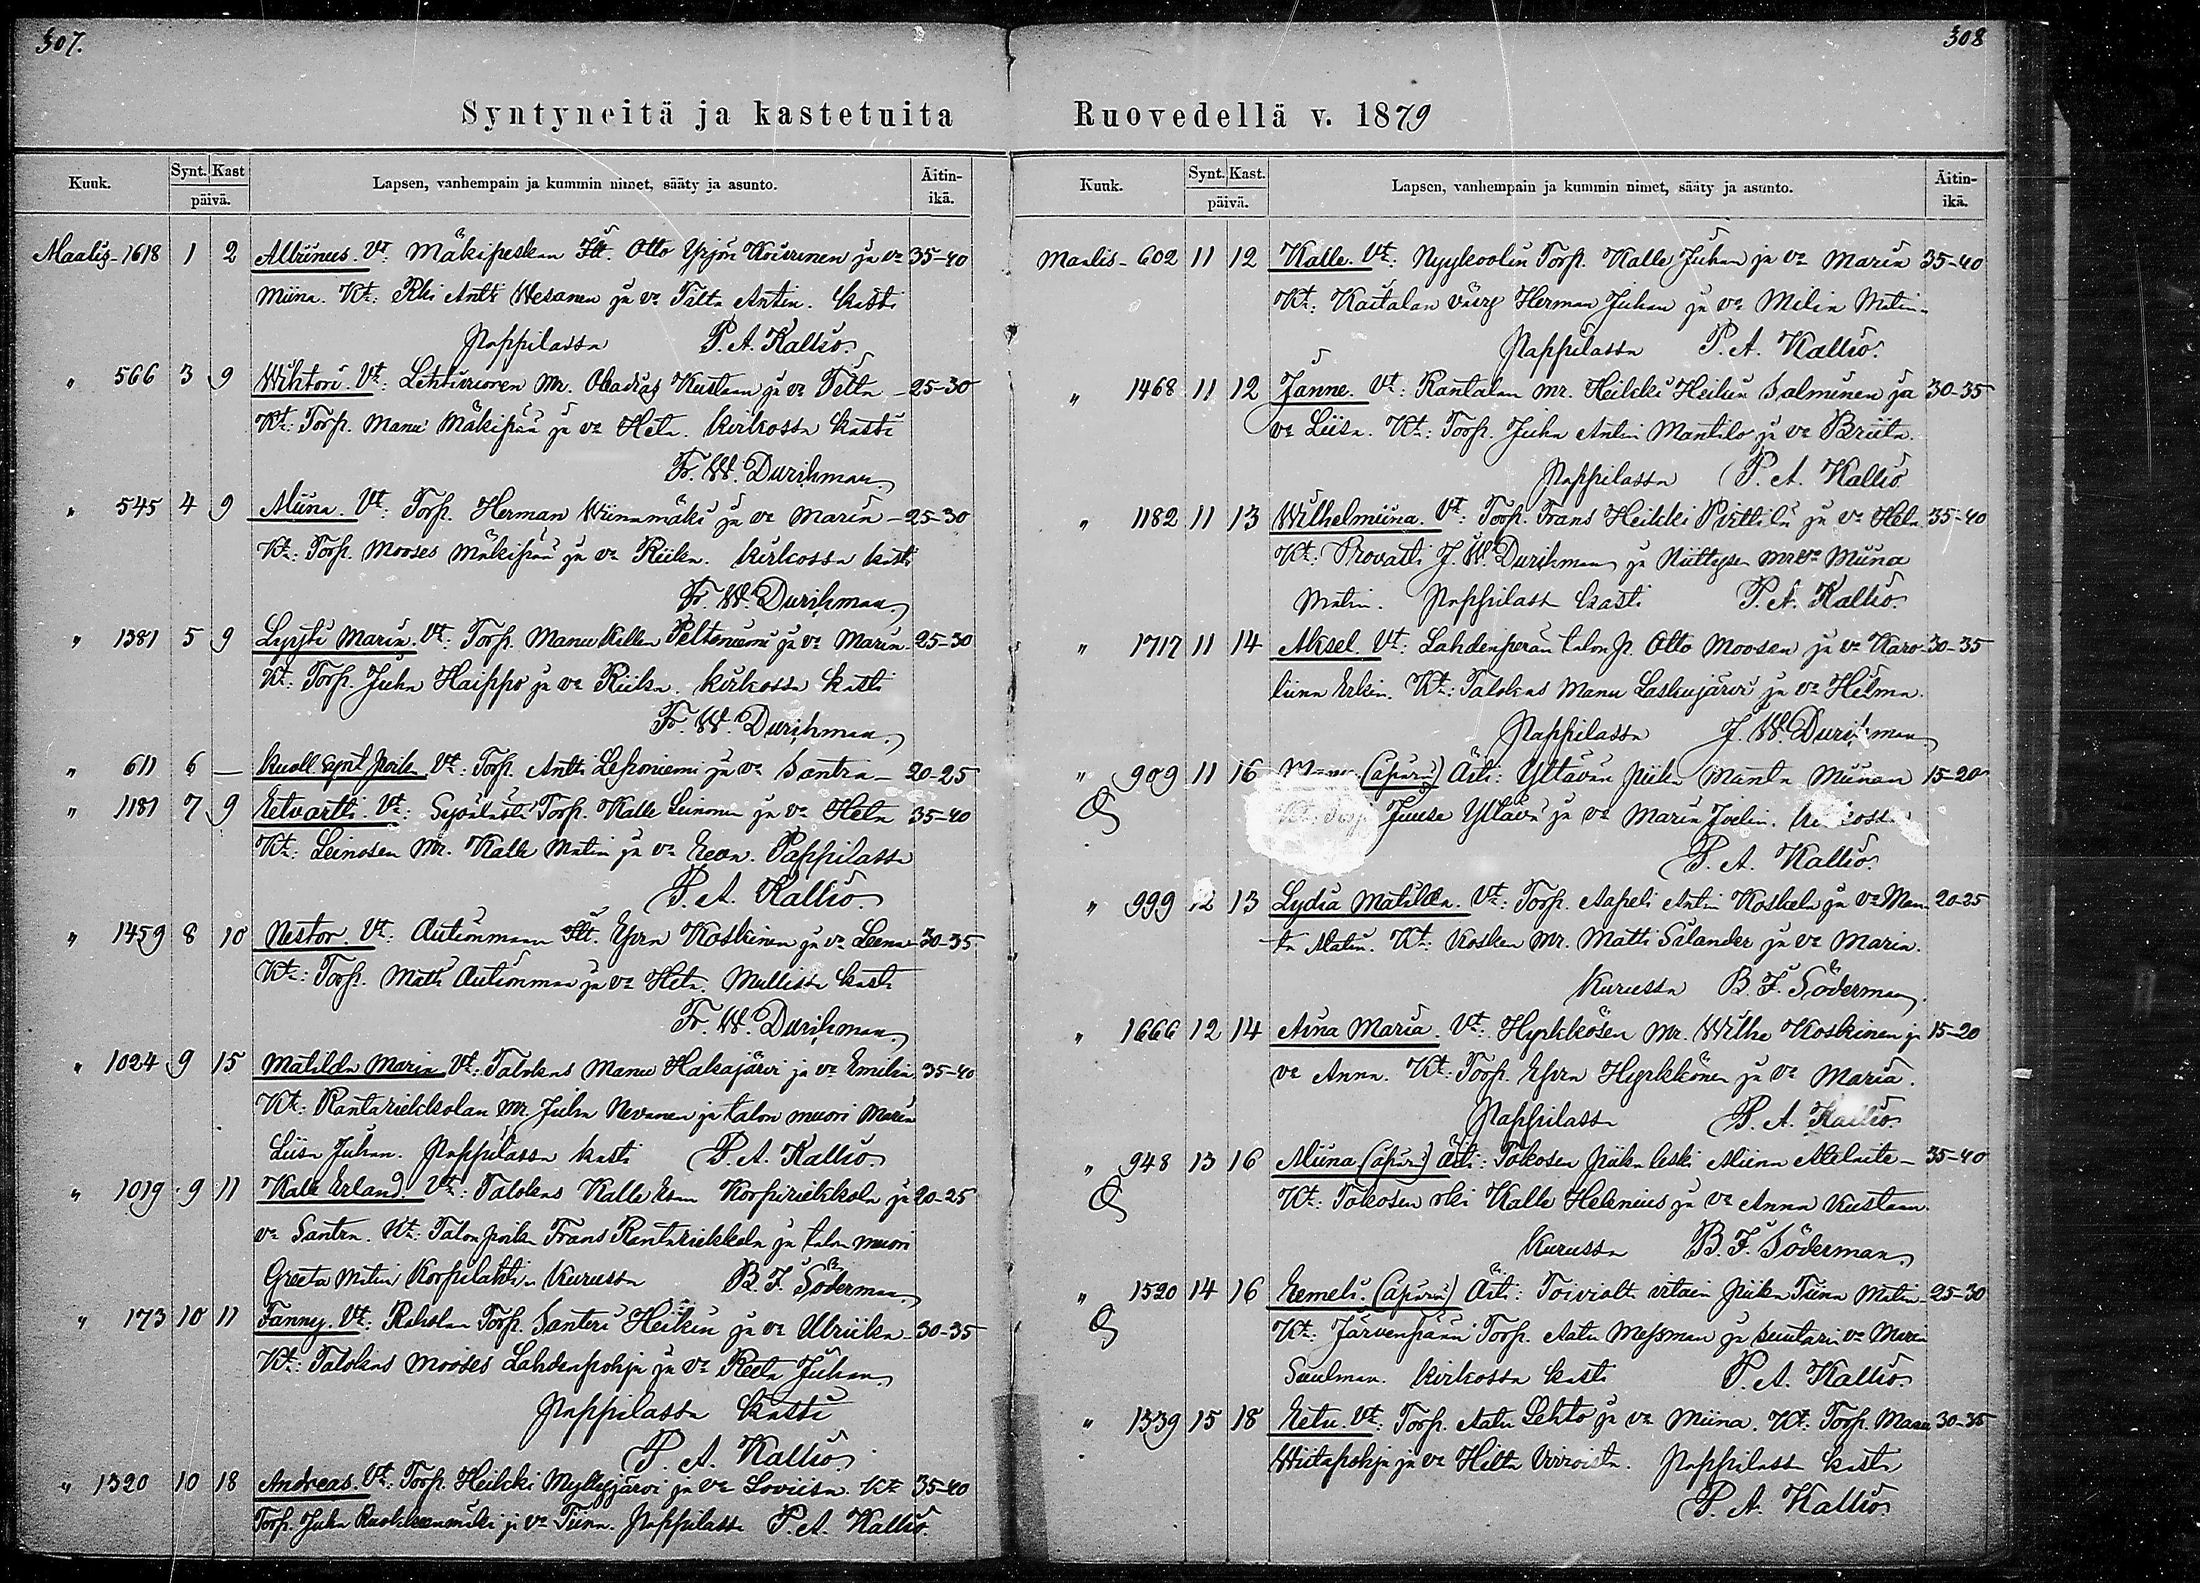 307.
Syntyneitä ja kastetuita
Kuuk.
Synt. Kast
päivä.
Lapsen, vanhempain ja kummin nimet, sääty ja asunto.
Äitin-
ikä.
Maalis- 1618 1 2 Vt. Mäkipeskan Itt. Otto Yrjön Koivunen ja vo 35-40
Miina. Kt: Rki Antti Wesanen ja vo Antin. kasti
Pappilassa P. A. Kallio.
" 566 3 9 Wihtori. Vt: Mr. Obadias Kustaan ja vo 25-30
Kt: Torp. Manu Mäkipää ja vo Heta. kirkossa kasti
Fr. W. Durchman.
" 545 4 9 Miina. Vt: Torp. Herman Wiinamäki ja vo Maria 25-30
Kt: Torp. Mooses Mäkipää ja vo Riika. kirkossa kasti
Fr. W. Durchman.
" 1381 5 9 Lyyti Maria. Vt: Torp. Manu Killen Peltoniemi ja vo Maria 25-30
Kt: Torp. Juha Haippo ja vo Riika. kirkossa kasti
Fr. W. Durchman.
" 611 6 — Kuoll. synt. poika Vt: Torp. Antti Leponiemi ja vo Santra 20-25
" 1181 7 9 Eetvartti. Vt: Torp. Kalle Leinonen ja vo Heta 35-40
Kt: Leinosen Mr. Kalle Matin ja vo Eeva. Pappilassa
P. A. Kallio.
" 1459 8 10 Nestor. Vt: Autionmaan Itt. Epra Koskinen ja vo Leena 30-35
Kt: Torp. Matti Autionmaa ja vo Heta. kasti
Fr. W. Durchman.
" 1024 9 15 Matilda Maria Vt: Talokas Manu Hakajärvi ja vo Emilia 35-40
Kt: Rantariekkolan Mr. Juha Nevanen ja talon muori Maria
Liisa Juhan. Pappilassa kasti P. A. Kallio.
" 1019 9 11 Kalle Erland. Vt: Talokas Kalle Korpiriekkola ja 20-25
vo Santra. Kt: Talon poika Frans Rantariekkola ja talon muori
Greeta Matin Korpilahti Kurussa B. F. Söderman.
" 173 10 11 Fanny. Vt: Torp. Santeri Heikin ja vo Ulriika 30-35
Kt: Talokas Mooses Lahdenpohja ja vo Reeta Juhan.
Pappilassa kasti
P. A. Kallio.
" 1320 10 18 Andreas. Vt: Torp. Heikki Myllyjärvi ja vo Loviisa. Kt 35-40
Torp. Juha ja vo Tiina. Pappilassa P. A. Kallio.
308
Ruovedellä v. 1879
Kuuk.
Synt. Kast.
päivä.
Lapsen, vanhempain ja kummin nimet, sääty ja asunto.
Äitin-
ikä.
Maalis- 602 11 12 Kalle. Vt: Torp. Kalle Juhan ja vo Maria 35-40
Kt: Kaitalan Herman Juhan ja vo Milia Matin.
Pappilassa P. A. Kallio.
" 1468 11 12 Janne. Vt: Rantalan mr. Heikki Heikin Salminen ja 30-35
vo Liisa. Kt: Torp. Juha Antin Mantila ja vo Briita.
Pappilassa P. A. Kallio
" 1182 11 13 Wilhelmiina. Vt: Torp. Frans Heikki Pirttilä ja vo Heta 35-40
Kt: Provasti F. W. Durchman ja mr vo Miina
Matin. Pappilassa kasti P. A. Kallio.
" 1717 11 14 Aksel. Vt: Lahdenperän talon p. Otto Moosen ja vo Karo- 30-35
liina Erkin. Kt: Talokas Manu Laskujärvi ja vo Helma.
Pappilassa F. W. Durchman
" 909 11 16 (äpärä) Äiti: Yltävän piika Manta Miinan 15-20
Kt. Torp. Juuse Yltävä ja vo Maria Joelin. kirkossa
P. A. Kallio.
" 999 12 13 Lydia Matilda. Vt: Torp. Aapeli Antin Koskela ja vo Man- 20-25
ta Matin. Kt: Kosken Mr. Matti Salander ja vo Maria.
Kurussa B. F. Söderman.
" 1666 12 14 Aina Maria. Vt: Hyrkkösen Mr. Wilhe Koskinen ja 15-20
vo Anna. Kt: Torp. Epra Hyrkkönen ja vo Maria.
Pappilassa P. A. Kallio.
" 948 13 16 Miina (äpärä) Äiti: Tokosen piika leski Miina 35-40
Kt: Tokosen rki Kalle Helenius ja vo Anna Kustaan.
Kurussa B. F. Söderman.
" 1520 14 16 Eemeli. (äpärä) Äiti: piika Tiina Matin 25-30
Kt: Järvenpään Torp. Aatu Messman ja suutarin vo Maria
kirkossa kasti P. A. Kallio.
" 1339 15 18 Eetu. Vt: Torp. Aatu Lehto ja vo Miina. Kt. Torp. Manu 30-35
Wiitapohja ja vo Hilta Virroista. Pappilassa kasti
P. A. Kallio